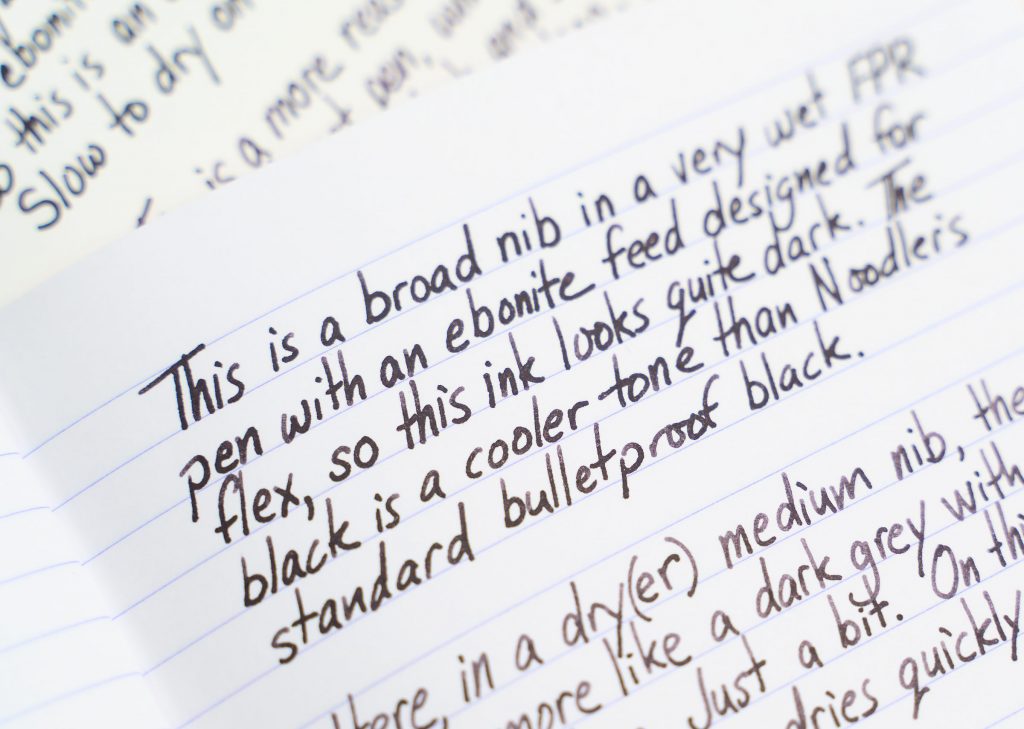 ebonit
this is an
Slow to dry on
is a more rea
pen,
and
This is a broad nib in a very wet FPR
pen with an ebonite feed designed for
flex, so this ink looks quite dark. The
black is a cooler tone than Noodler's
standard bulletproof black.
Here, in a dry(er) medium nib, the
more like a dark grey with
Just a bit. On thi
dries quickly